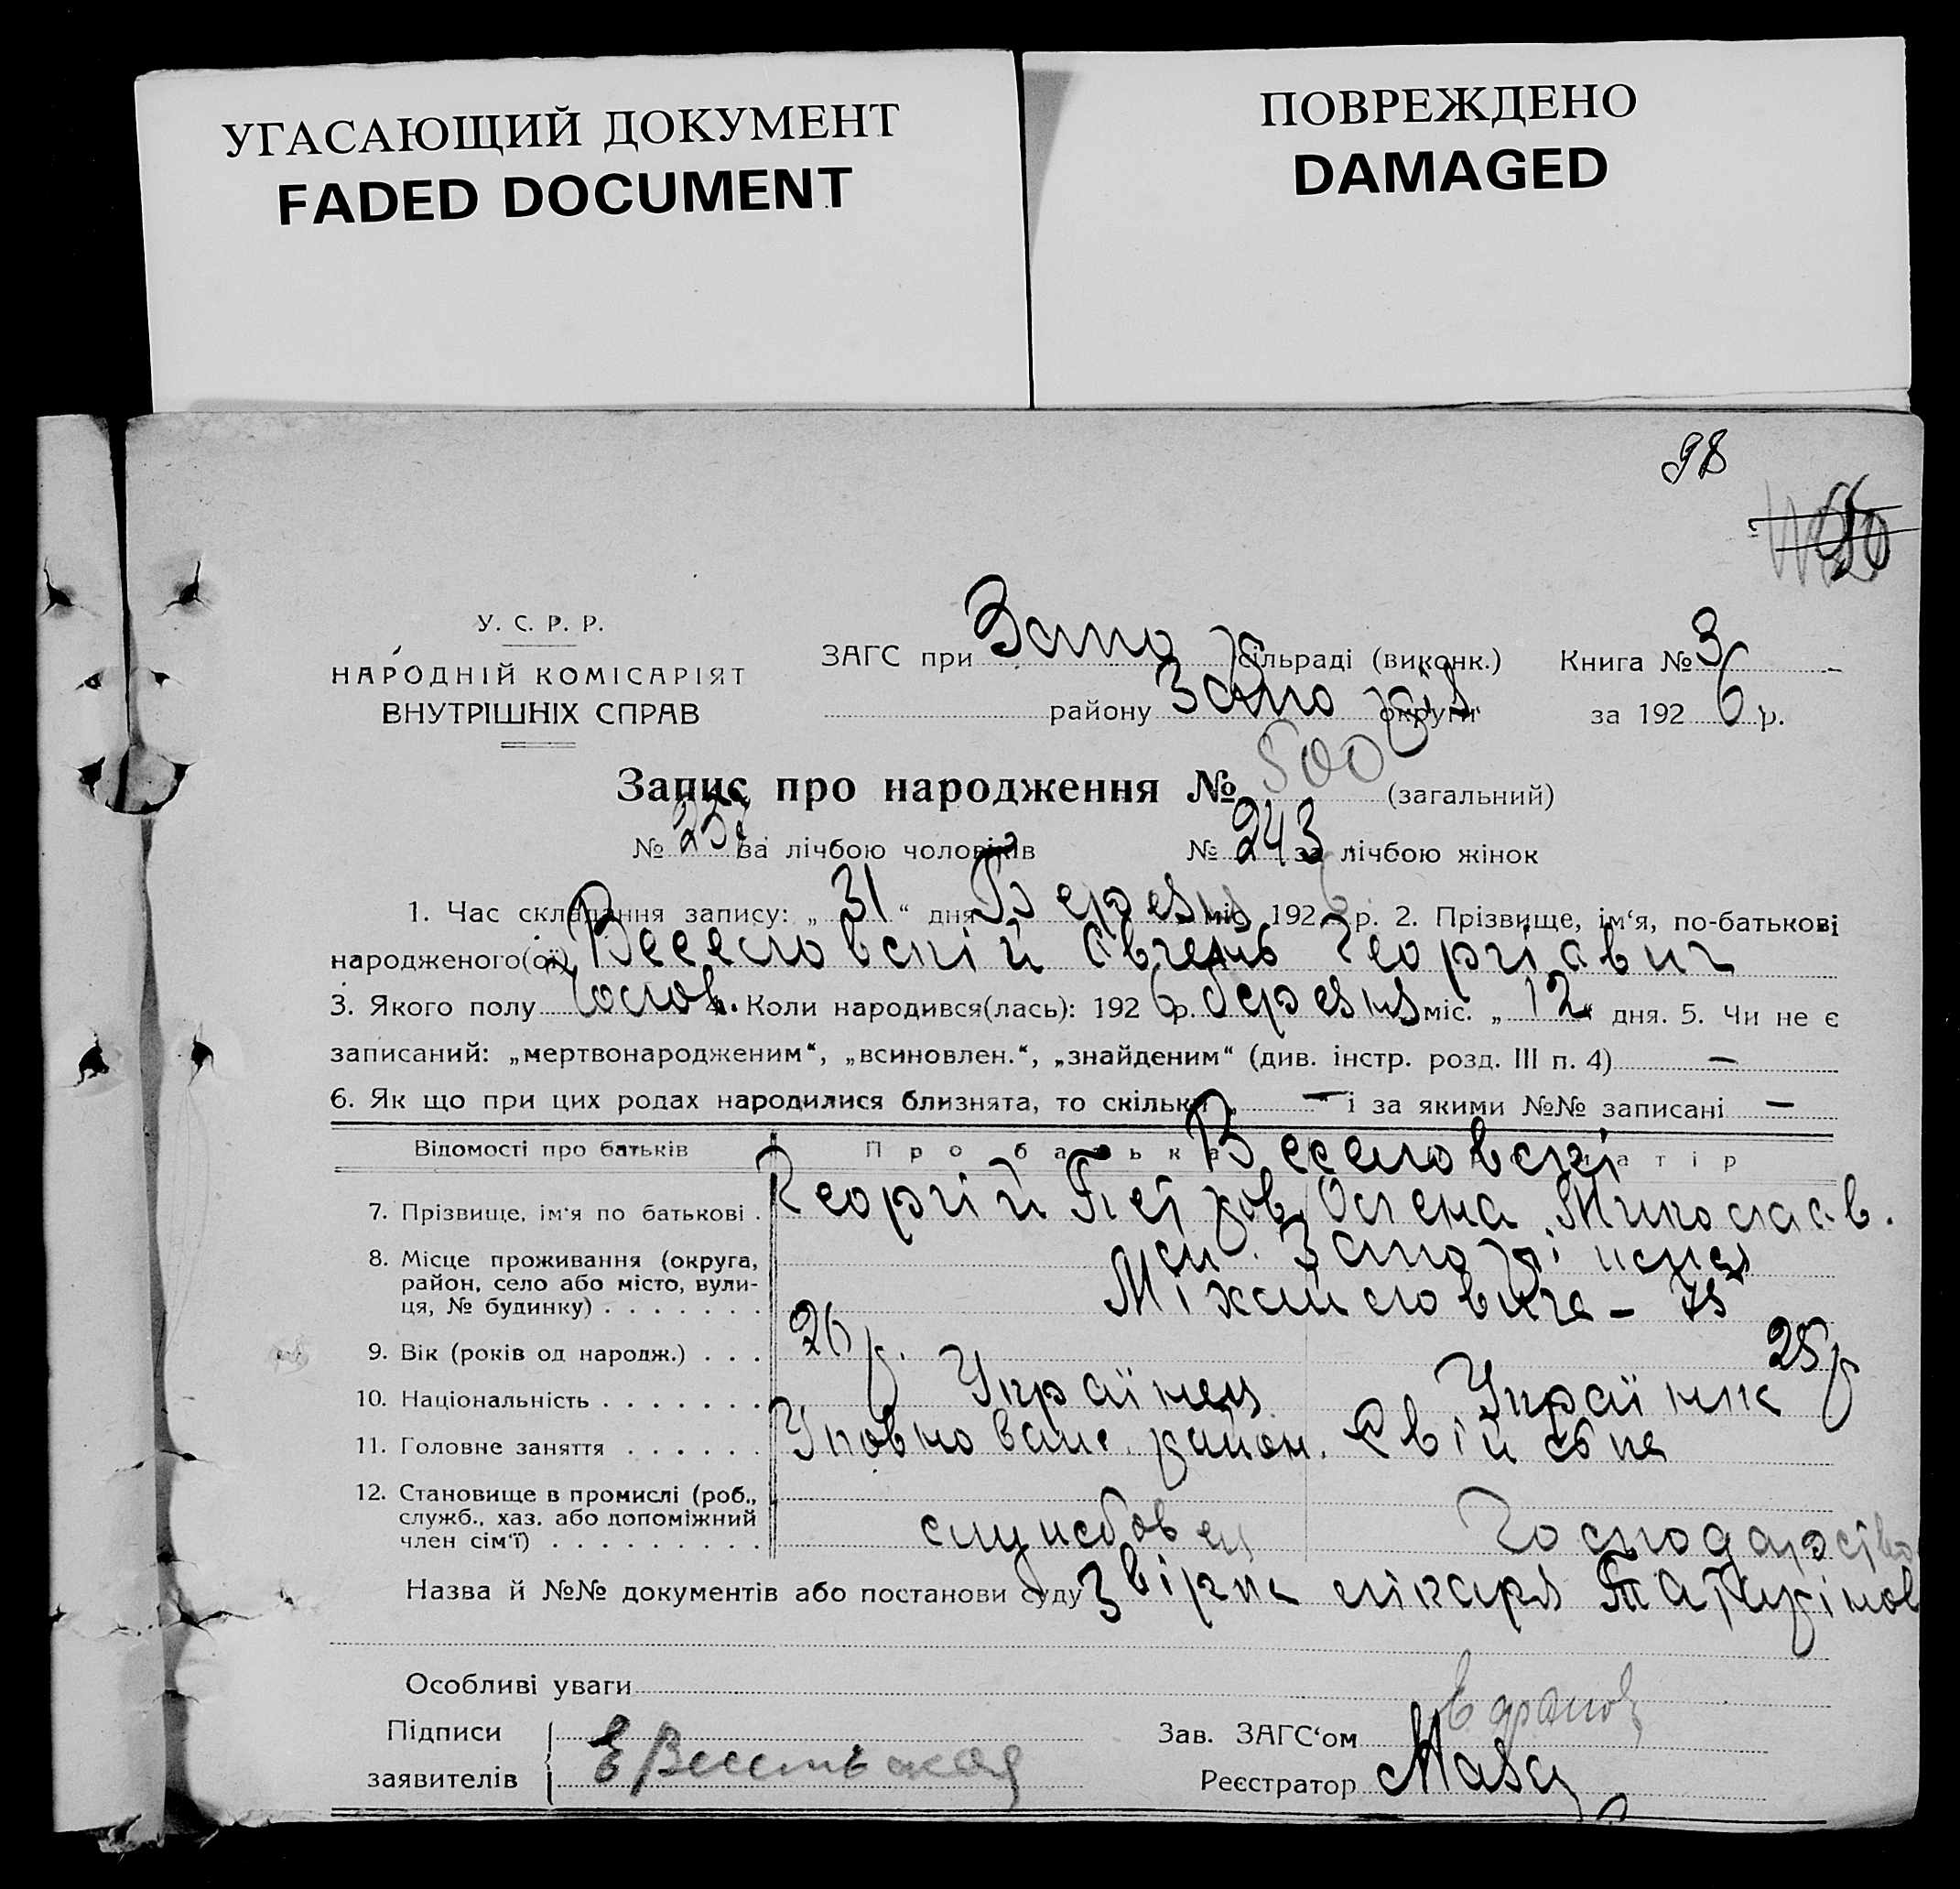 УГАСАЮЩИЙ ДОКУМЕНТ
FADED DOCUMENT
ПОВРЕЖДЕНО
DAMAGED
98
У. С. Р. Р.
НАРОДНІЙ КОМІСАРІЯТ
ВНУТРІШНІХ СПРАВ
ЗАГС при Запо сільраді (виконк.) Книга № 3
району Запо округи за 192 6 р.
Запис про народження № 500 (загальний)
№ 257 за лічбою чоловіків № 243 за лічбою жінок
1. Час складання запису: „ 31 “ дня Березня міс. 192 6 р. 2. Прізвище, ім‘я, по-батькові
народженого(ої) Веселовскій Євгень Георгіевич
3. Якого полу чолов. 4. Коли народився(лась): 192 6 р. березня міс. „ 12 “ дня. 5. Чи не є
записаний: „мертвонародженим“, „всиновлен.“, „знайденим“ (див. інстр. розд. III п. 4) —
6. Як що при цих родах народилися близнята, то скільки „ — “ і за якими №№ записані —
Відомості про батьків Про батька матір
Веселовскі
7. Прізвище, ім‘я по батькові . Георгій Петров. Олена Миколаєв.
8. Місце проживання (округа, район, село або місто, вулиця, № будинку) . . . . . . . м. Запоріжжя
Міхайловска – 75
9. Вік (років од народж.) . . . 26 р. 25 р
10. Національність . . . . . . . Українец Українка
11. Головне заняття . . . . . . Уповноваж. район. Хвійська
12. Становище в промислі (роб., служб., хаз. або допоміжний член сім‘ї) . . . . . . . . . службовец Господарство
Назва й №№ документів або постанови суду Звірка лікаря
Особливі уваги
Підписи
заявителів Е Веселовская
Зав. ЗАГС‘ом
Реєстратор